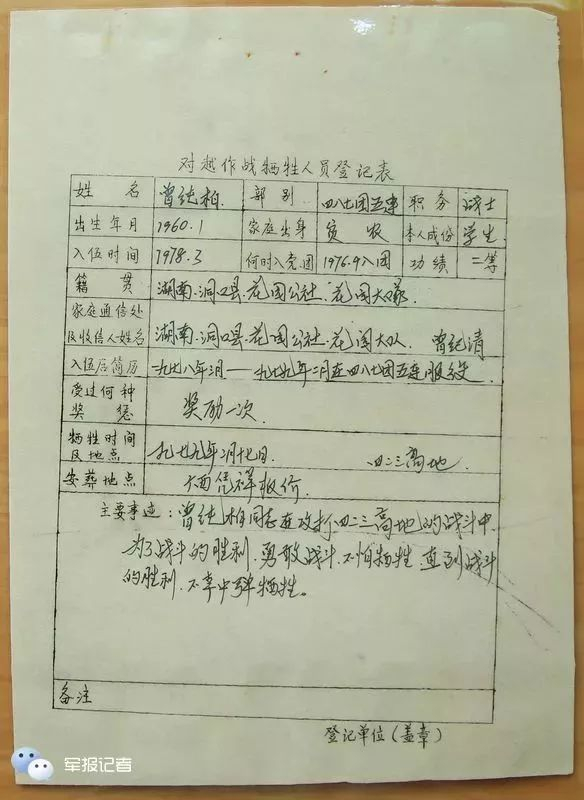 对越作战牺牲人员登记表
姓名 曾纪柏 部别 四八七团五连 职务 战士
出生年月 1960.1 家庭出身 贫农 本人成份 学生
入伍时间 1978.3 何时入党团 1976.9入团 功绩 二等
籍贯 湖南·洞口县·花园公社·花园大队
家庭通信处
及收信人姓名 湖南·洞口县·花园公社·花园大队 曾纪清
入伍后简历 一九七八年三月——一九七九年二月在四八七团五连服役
受过何种
奖惩 奖励一次
牺牲时间
及地点 一九七九年二月十七日 四二三高地
安葬地点 广西凭祥
主要事迹：曾纪柏同志在攻打四二三高地的战斗中
为了战斗的胜利、勇敢战斗、不怕牺牲、直到战斗
的胜利、不幸中弹牺牲。
备注
登记单位（盖章）
军报记者